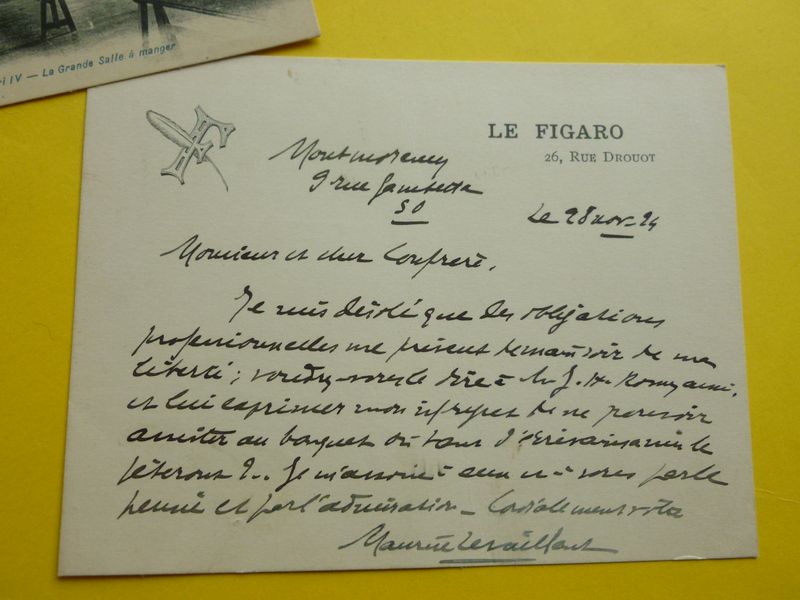 i IV — La Grande Salle à manger
F
LE FIGARO
26, RUE DROUOT
Montmorency
9 rue Gambetta
S O
Le 28 nov. 24
Monsieur et cher Confrère,
Je suis désolé que des obligations
professionnelles me privent demain soir de ma
liberté ; voudrez-vous le dire à M. J. H. Rosny aîné,
et lui exprimer mon regret de ne pouvoir
assister au banquet où tant d'écrivains amis le
fêteront ?.. Je m'associe à eux et à vous par la
pensée et par l'admiration — Cordialement vôtre
Maurice Levaillant